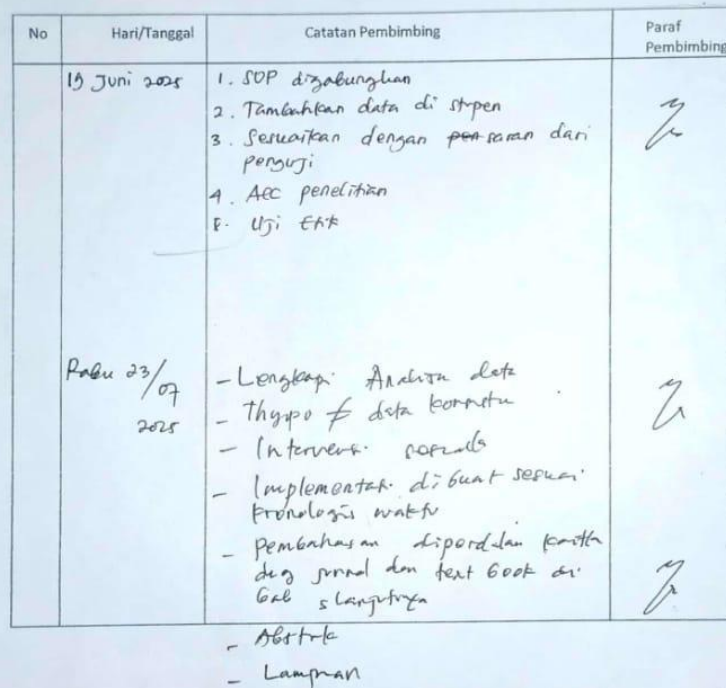 No Hari/Tanggal Catatan Pembimbing Paraf Pembimbing
19 Juni 2025
1. SOP digabungkan
2. Tambahkan data di stupen
3. Sesuaikan dengan saran dari
penguji
4. Acc penelitian
5. Uji Etik
Rabu 23/07
2025
- Lengkapi Analisa data
- Thypo ≠ data
- Intervensi
- Implementasi dibuat sesuai
kronologis waktu
- Pembahasan
dng jurnal dan text book di
bab slanjutnya
- Abstrak
- Lampiran